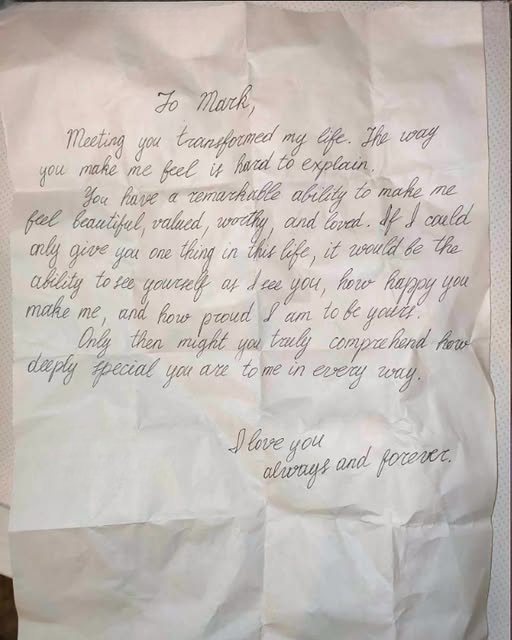 To Mark,
Meeting you transformed my life. The way
you make me feel is hard to explain.
You have a remarkable ability to make me
feel beautiful, valued, worthy, and loved. If I could
only give you one thing in this life, it would be the
ability to see yourself as I see you, how happy you
make me, and how proud I am to be yours.
Only then might you truly comprehend how
deeply special you are to me in every way.
I love you
always and forever.